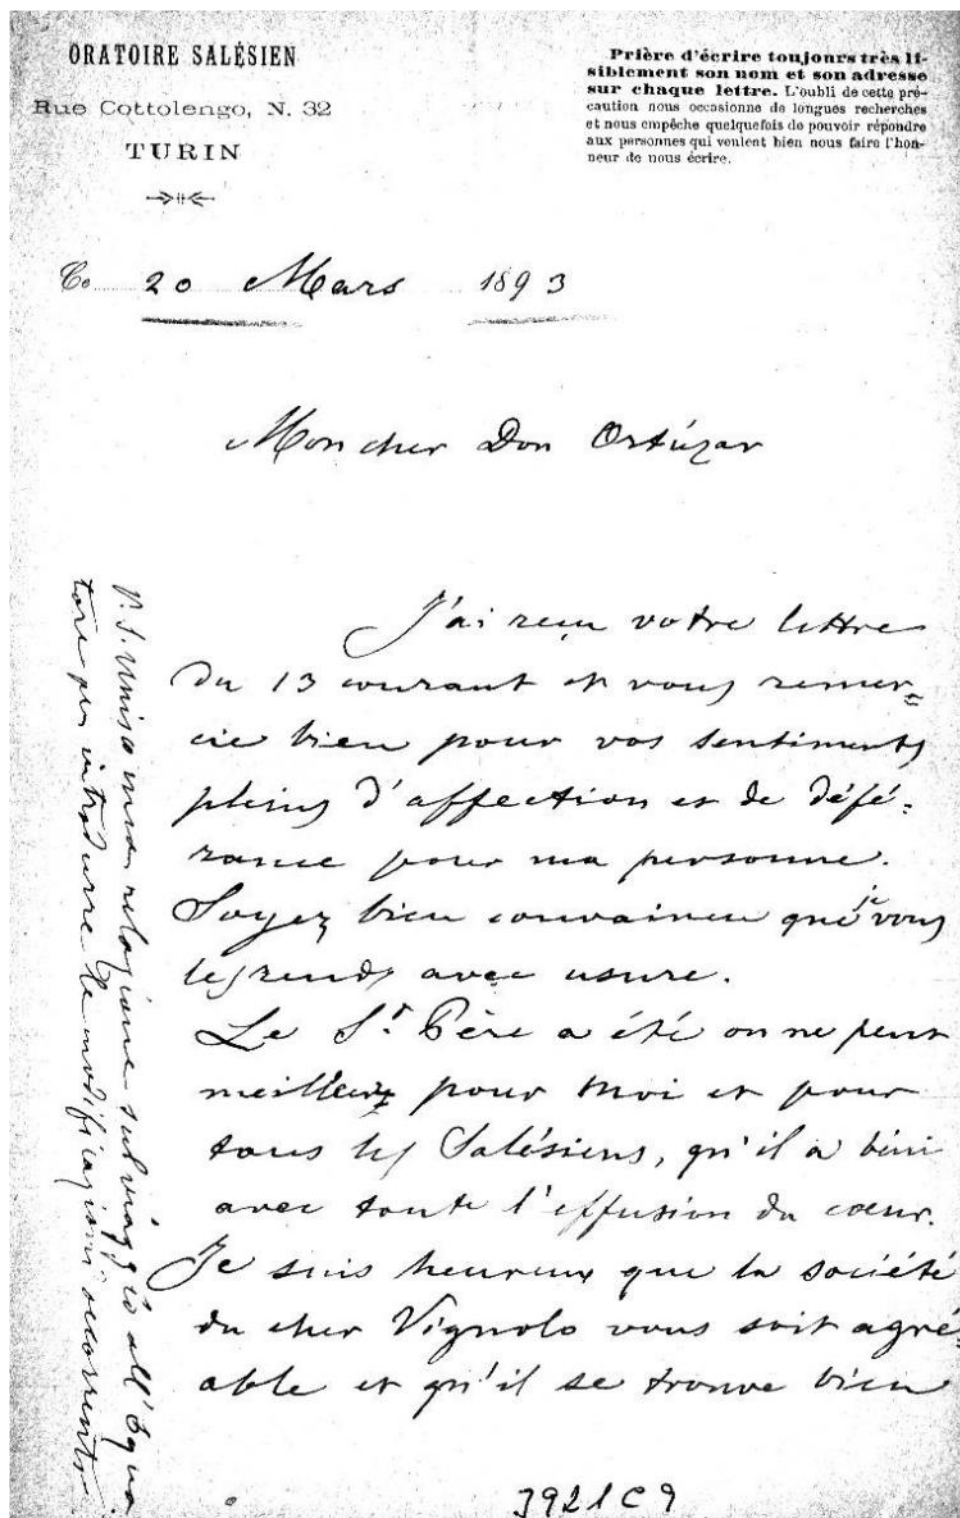 ORATOIRE SALÉSIEN
Rue Cottolengo, N. 32
TURIN
Prière d'écrire toujours très li-
siblement son nom et son adresse
sur chaque lettre. L'oubli de cette pré-
caution nous occasionne de longues recherches
et nous empêche quelquefois de pouvoir répondre
aux personnes qui veulent bien nous faire l'hon-
neur de nous écrire.
Ce 20 Mars 1893
Mon cher Don Ortúzar
J'ai reçu votre lettre
du 13 courant et vous remer=
cie bien pour vos sentiments
pleins d'affection et de défé=
rance pour ma personne.
Soyez bien convaincu que je vous
les rends avec usure.
Le St Père a été on ne peut
meilleur pour moi et pour
tous les Salésiens, qu'il a béni
avec toute l'effusion du cœur.
Je suis heureux que la société
du cher Vignolo vous soit agré=
able et qu'il se trouve bien
P.S. Unisco una relazione sul viaggio all'Equa
tore per introdurre le modificazioni occorrenti
3921 C 9